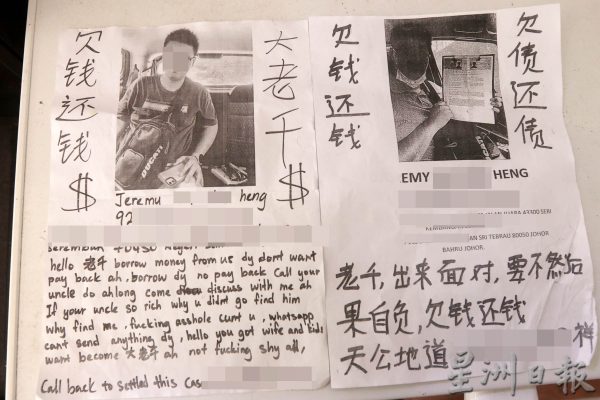 欠钱还钱
$
大老千
$
DUCATI
Jeremu heng
92
Seremban 70450 Negeri
hello 老千 borrow money from us dy don't want
pay back ah, borrow dy no pay back Call your
uncle do ahlong come discuss with me ah
If your uncle so rich why u didnt go find him
why find me, fucking asshole curt u, whatsapp
cant send anything dy, hello you got wife and kids
want become 大老千 ah not fucking shy ah,
Call back to settled this Cas
欠钱还钱
欠债还债
EMY HENG
43300 SERI
AN SRI TEBRAU 80050 JOHOR
BAHRU JOHOR.
老千,出来面对,要不然后
果自负,欠钱还钱
天公地道 祥
星洲日报